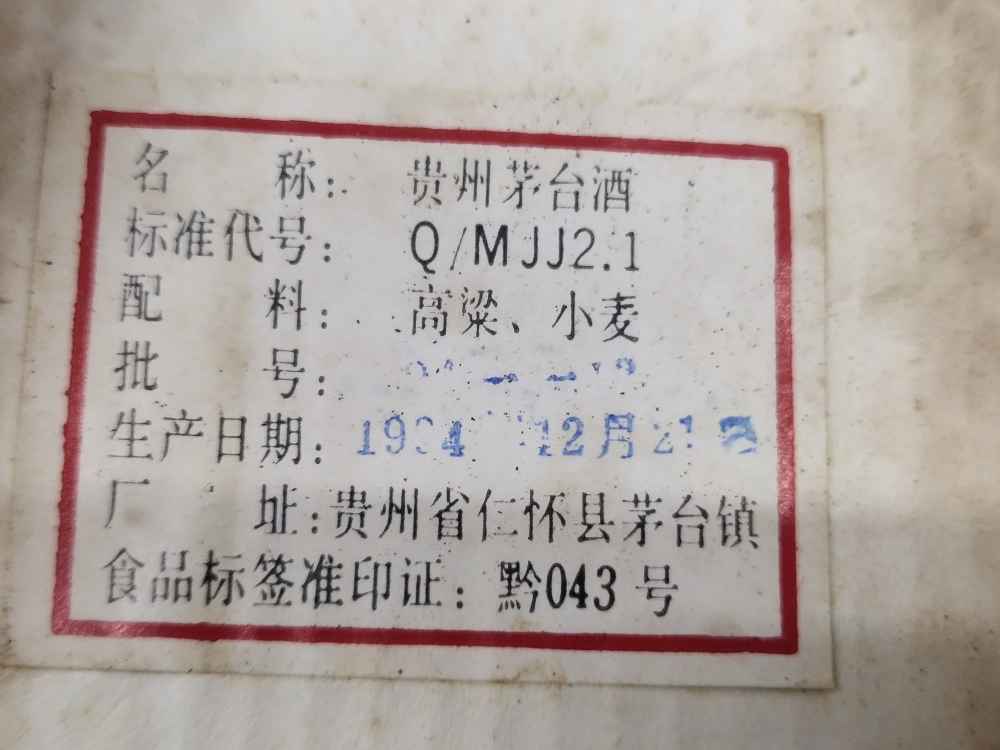 名 称: 贵州茅台酒
标准代号: Q/MJJ2.1
配 料: 高粱、小麦
批 号:
生产日期: 1994 12月21
厂 址:贵州省仁怀县茅台镇
食品标签准印证: 黔043号